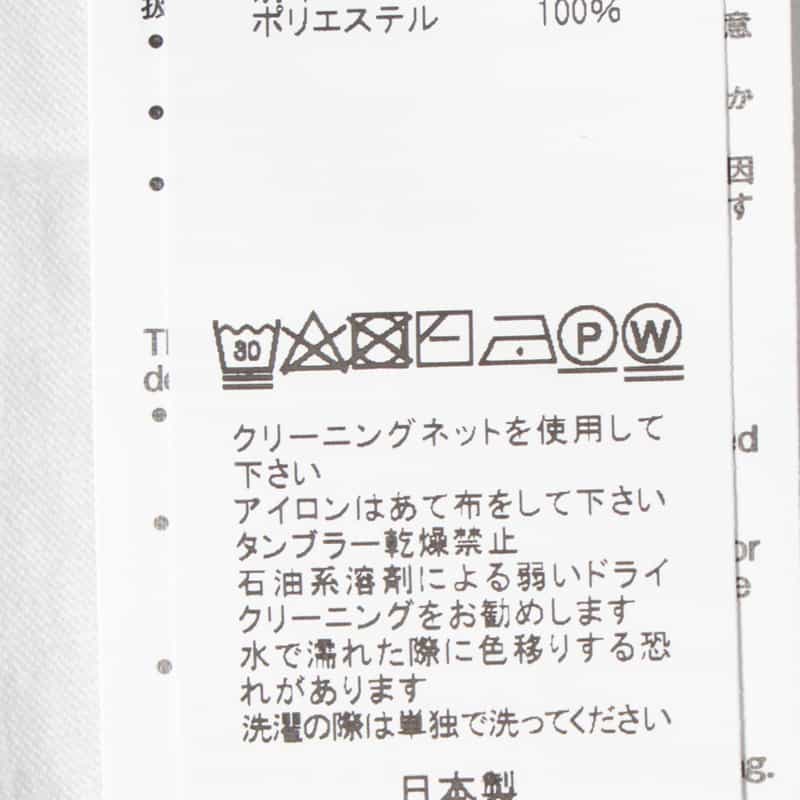 ポリエステル 100%
意
か
因
す
30
P
W
クリーニングネットを使用して
下さい
アイロンはあて布をして下さい
タンブラー乾燥禁止
石油系溶剤による弱いドライ
クリーニングをお勧めします
水で濡れた際に色移りする恐
れがあります
洗濯の際は単独で洗ってください
日本製